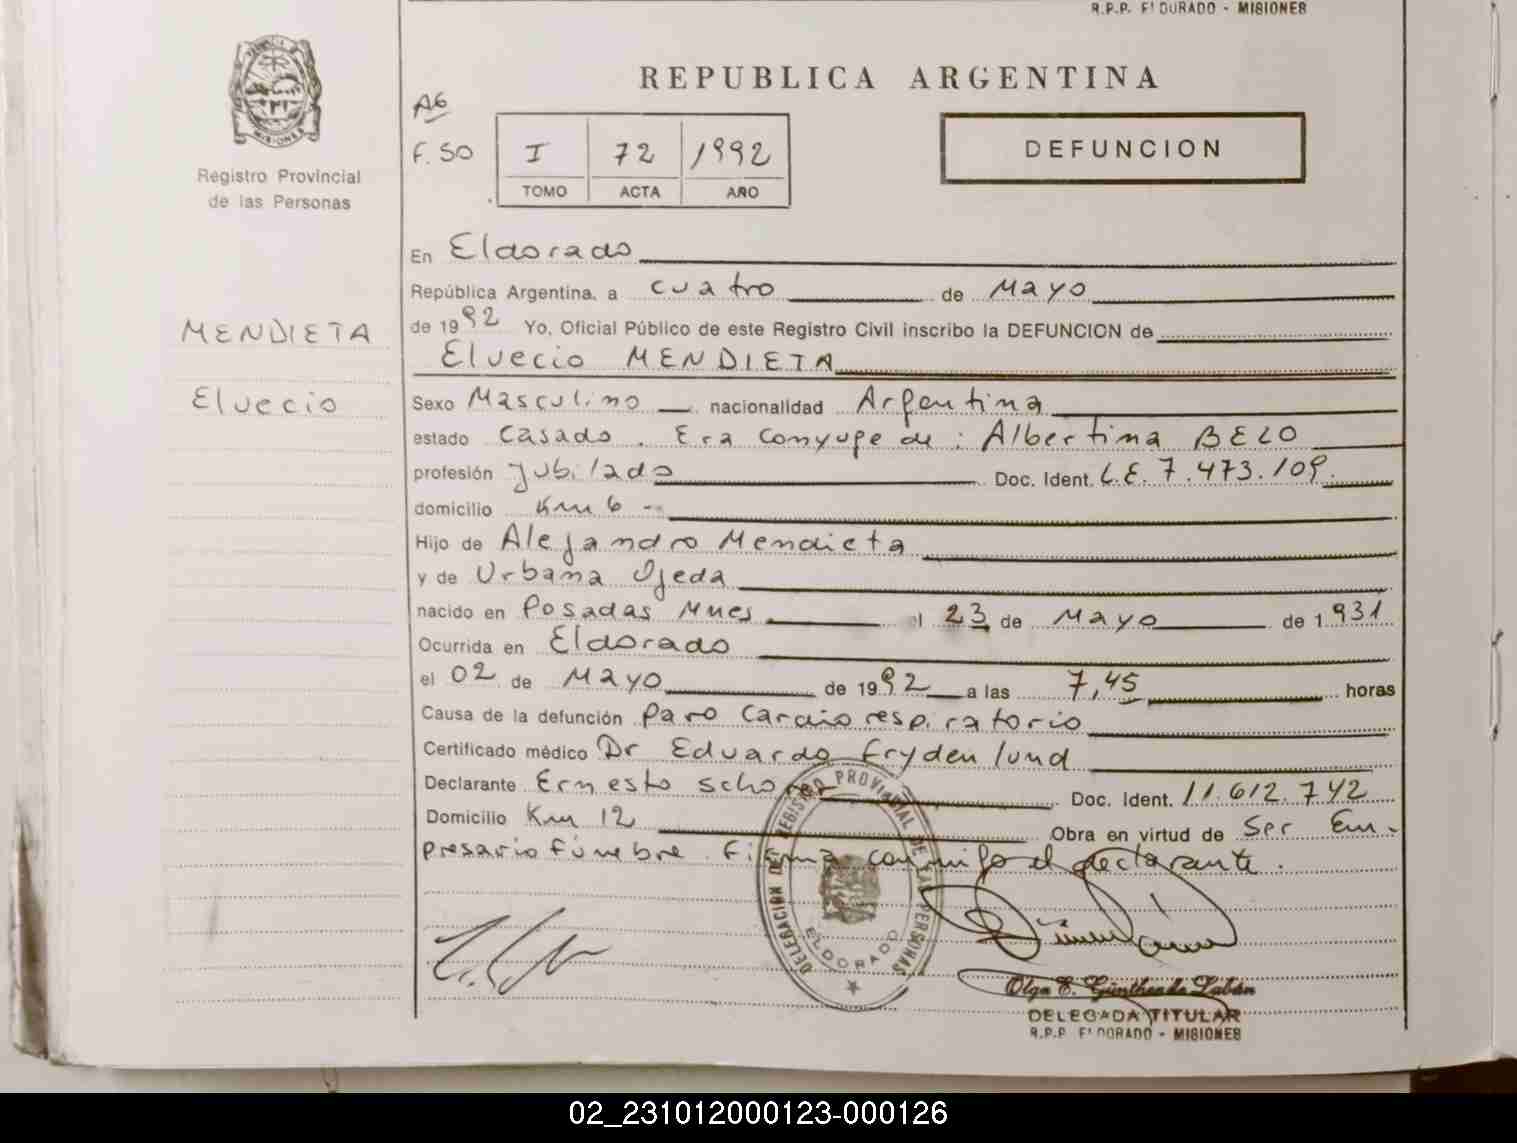 R.P.P. ELDORADO - MISIONES
REPUBLICA ARGENTINA
PROVINCIA DE
MISIONES
Registro Provincial
de las Personas
A6
F. 50
I 72 1992
TOMO ACTA AÑO
DEFUNCION
En Eldorado
República Argentina, a cuatro de Mayo
MENDIETA
de 1992 Yo, Oficial Público de este Registro Civil inscribo la DEFUNCION de
Elvecio MENDIETA
Elvecio
Sexo Masculino nacionalidad Argentina
estado Casado. Era Conyuge de: Albertina BELO
profesión Jubilado Doc. Ident. L.E. 7.473.109.
domicilio Km 6 -
Hijo de Alejandro Mendieta
y de Urbana Ojeda
nacido en Posadas Mnes el 23 de Mayo de 1.931
Ocurrida en Eldorado
el 02 de Mayo de 1992 a las 7,45 horas
Causa de la defunción Paro Cardio respiratorio
Certificado médico Dr Eduardo Frydenlund
Declarante Ernesto Doc. Ident. 11.612.742
Domicilio Km 12 Obra en virtud de Ser Em-
presario Fúnebre. Firma conmigo el declarante.
DELEGACION DEL REGISTRO PROVINCIAL DE LAS PERSONAS
ELDORADO
Olga E. Günther de Labán
DELEGADA TITULAR
R.P.P. ELDORADO - MISIONES
02_231012000123-000126